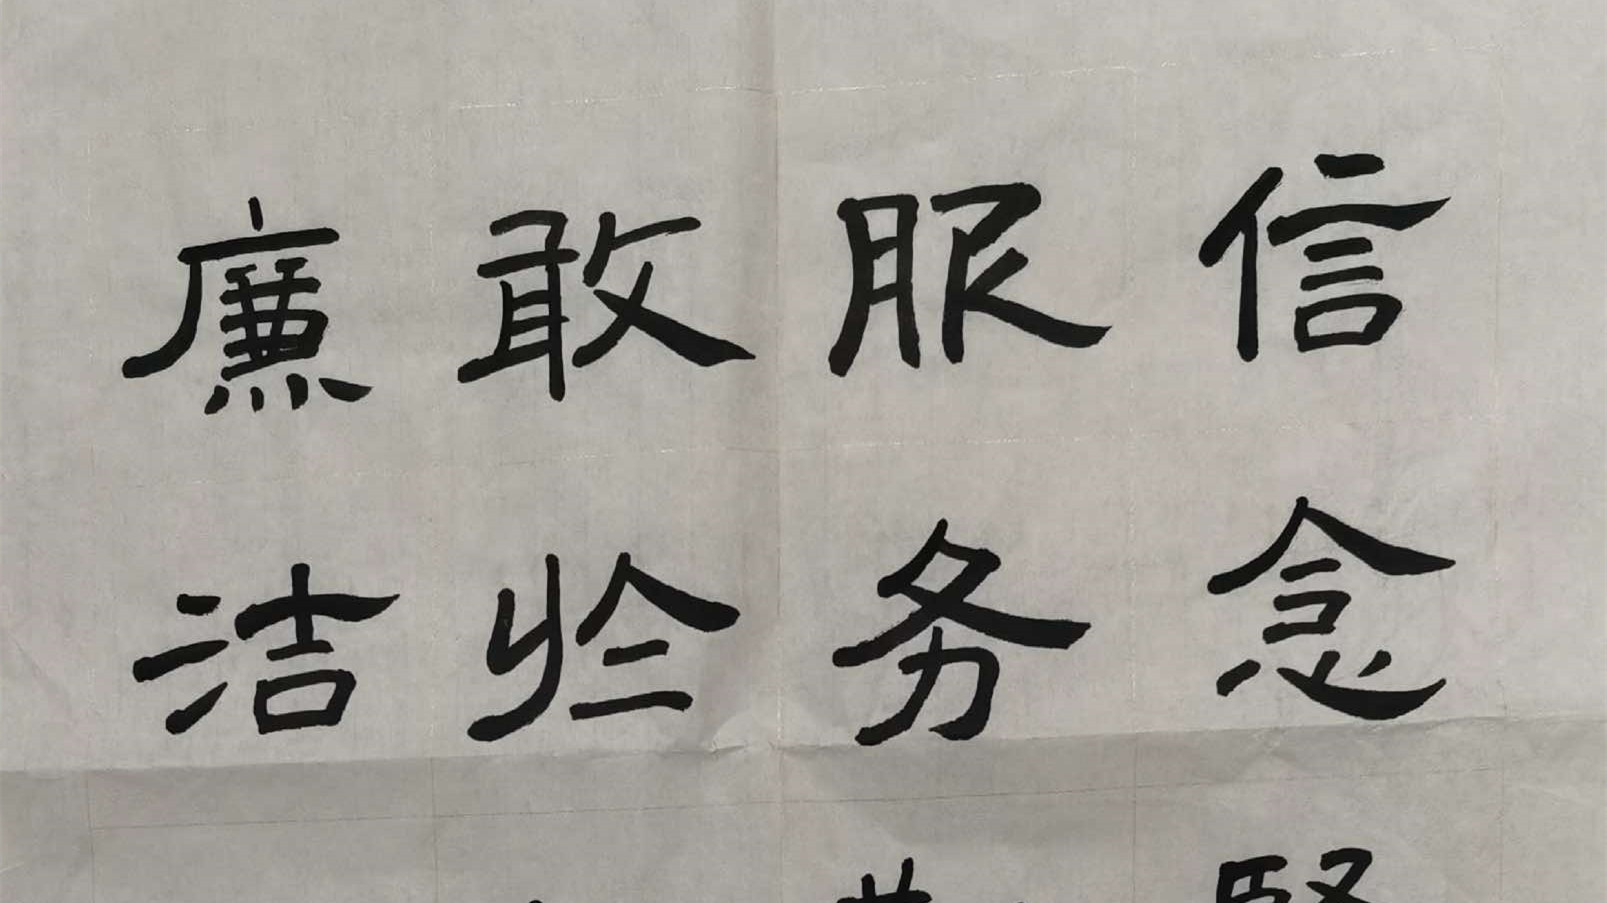 信念
服务
敢於
廉洁